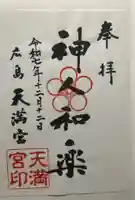 奉拝
神人和楽
令和七年十二月十二日
広島 天満宮
天満
宮印